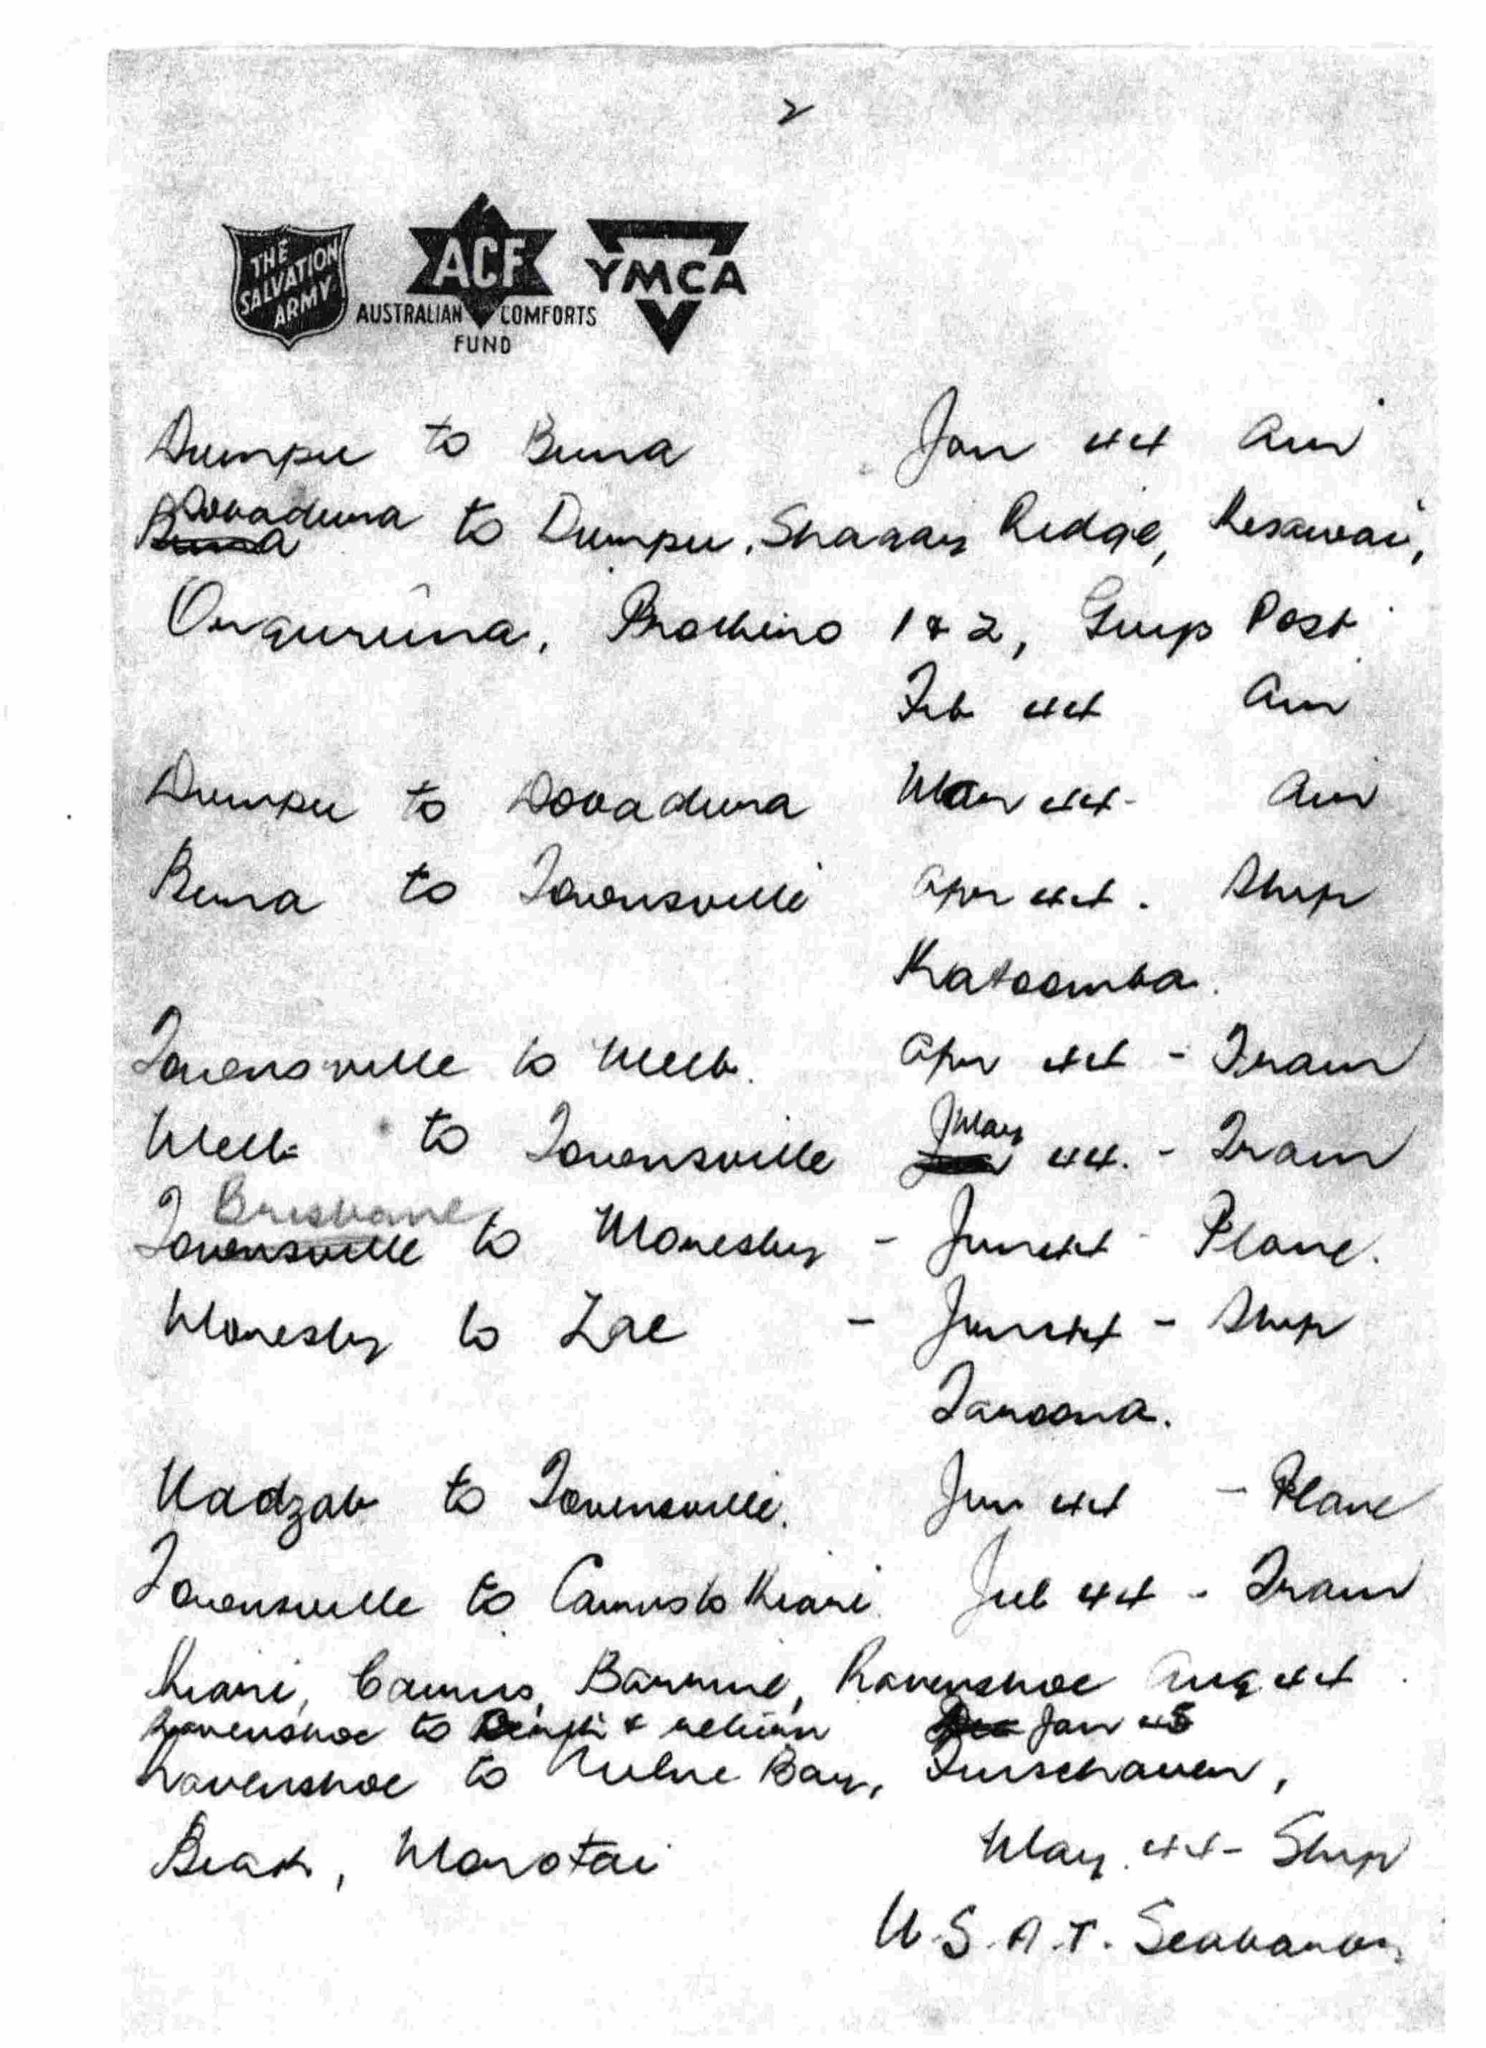 2
THE
SALVATION
ARMY
ACF
AUSTRALIAN COMFORTS
FUND
YMCA
Dumpu to Buna Jan 44 Air
Dobadura
Buna to Dumpu, Shaggy Ridge, Kesawai,
Orgoruna, 1 & 2, Guys Post
Feb 44 Air
Dumpu to Dobadura Mar 44 - Air
Buna to Townsville Apr 44. Ship
Katoomba.
Townsville to Melb. Apr 44 - Train
Melb to Townsville May 44. - Train
Brisbane
Townsville to Moresby - Jun 44 - Plane.
Moresby to Lae - Jun 44 - Ship
Taroona.
Nadzab to Townsville. Jun 44 - Plane
Townsville to Cairns to Kiari Jul 44 - Train
Kiari, Cairns, Barrine, Ravenshoe Aug 44
Ravenshoe to & return Jan 45
Ravenshoe to Milne Bay, Finschaven,
Biak, Morotai May 44 - Ship
U.S.A.T.